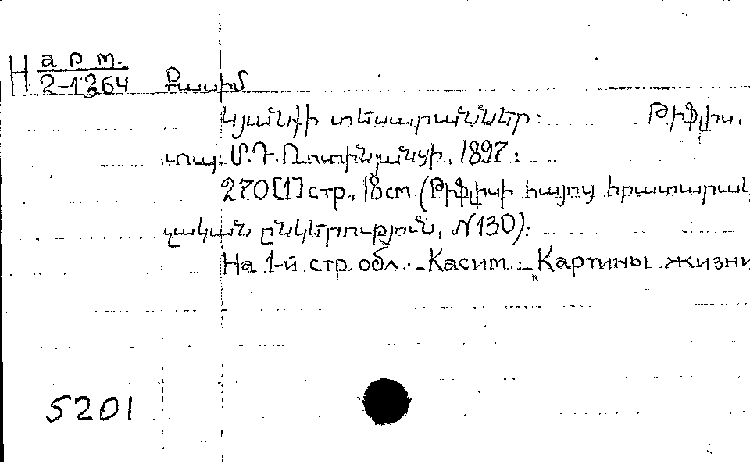 H арт.
2-1264 Քասիմ
Կյանքի տեսարաններ: Թիֆլիս,
տպ. Մ.Դ. Ռոտինյանցի, 1897:
270[1] стр., 18см (Թիֆլիսի հայոց հրատարակ
չական ընկերություն, №130):
На 1-й стр. обл. - Касим. - Картины жизни
5201